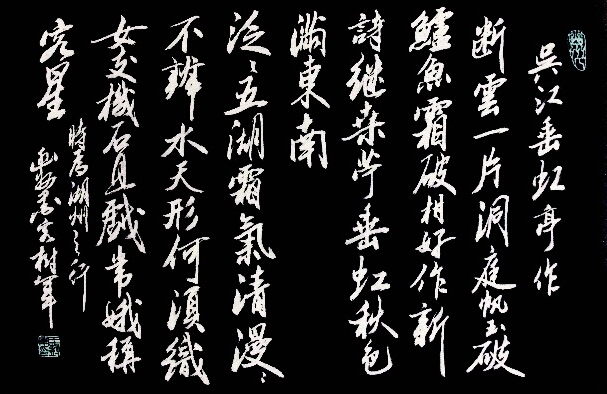 吳江垂虹亭作
断雲一片洞庭帆玉破
鱸魚霜破柑好作新
詩継桑苧垂虹秋色
滿東南
泛〻五湖霜氣清漫〻
不辨水天形何須織
女支機石且戲常娥稱
客星
時為湖州之行